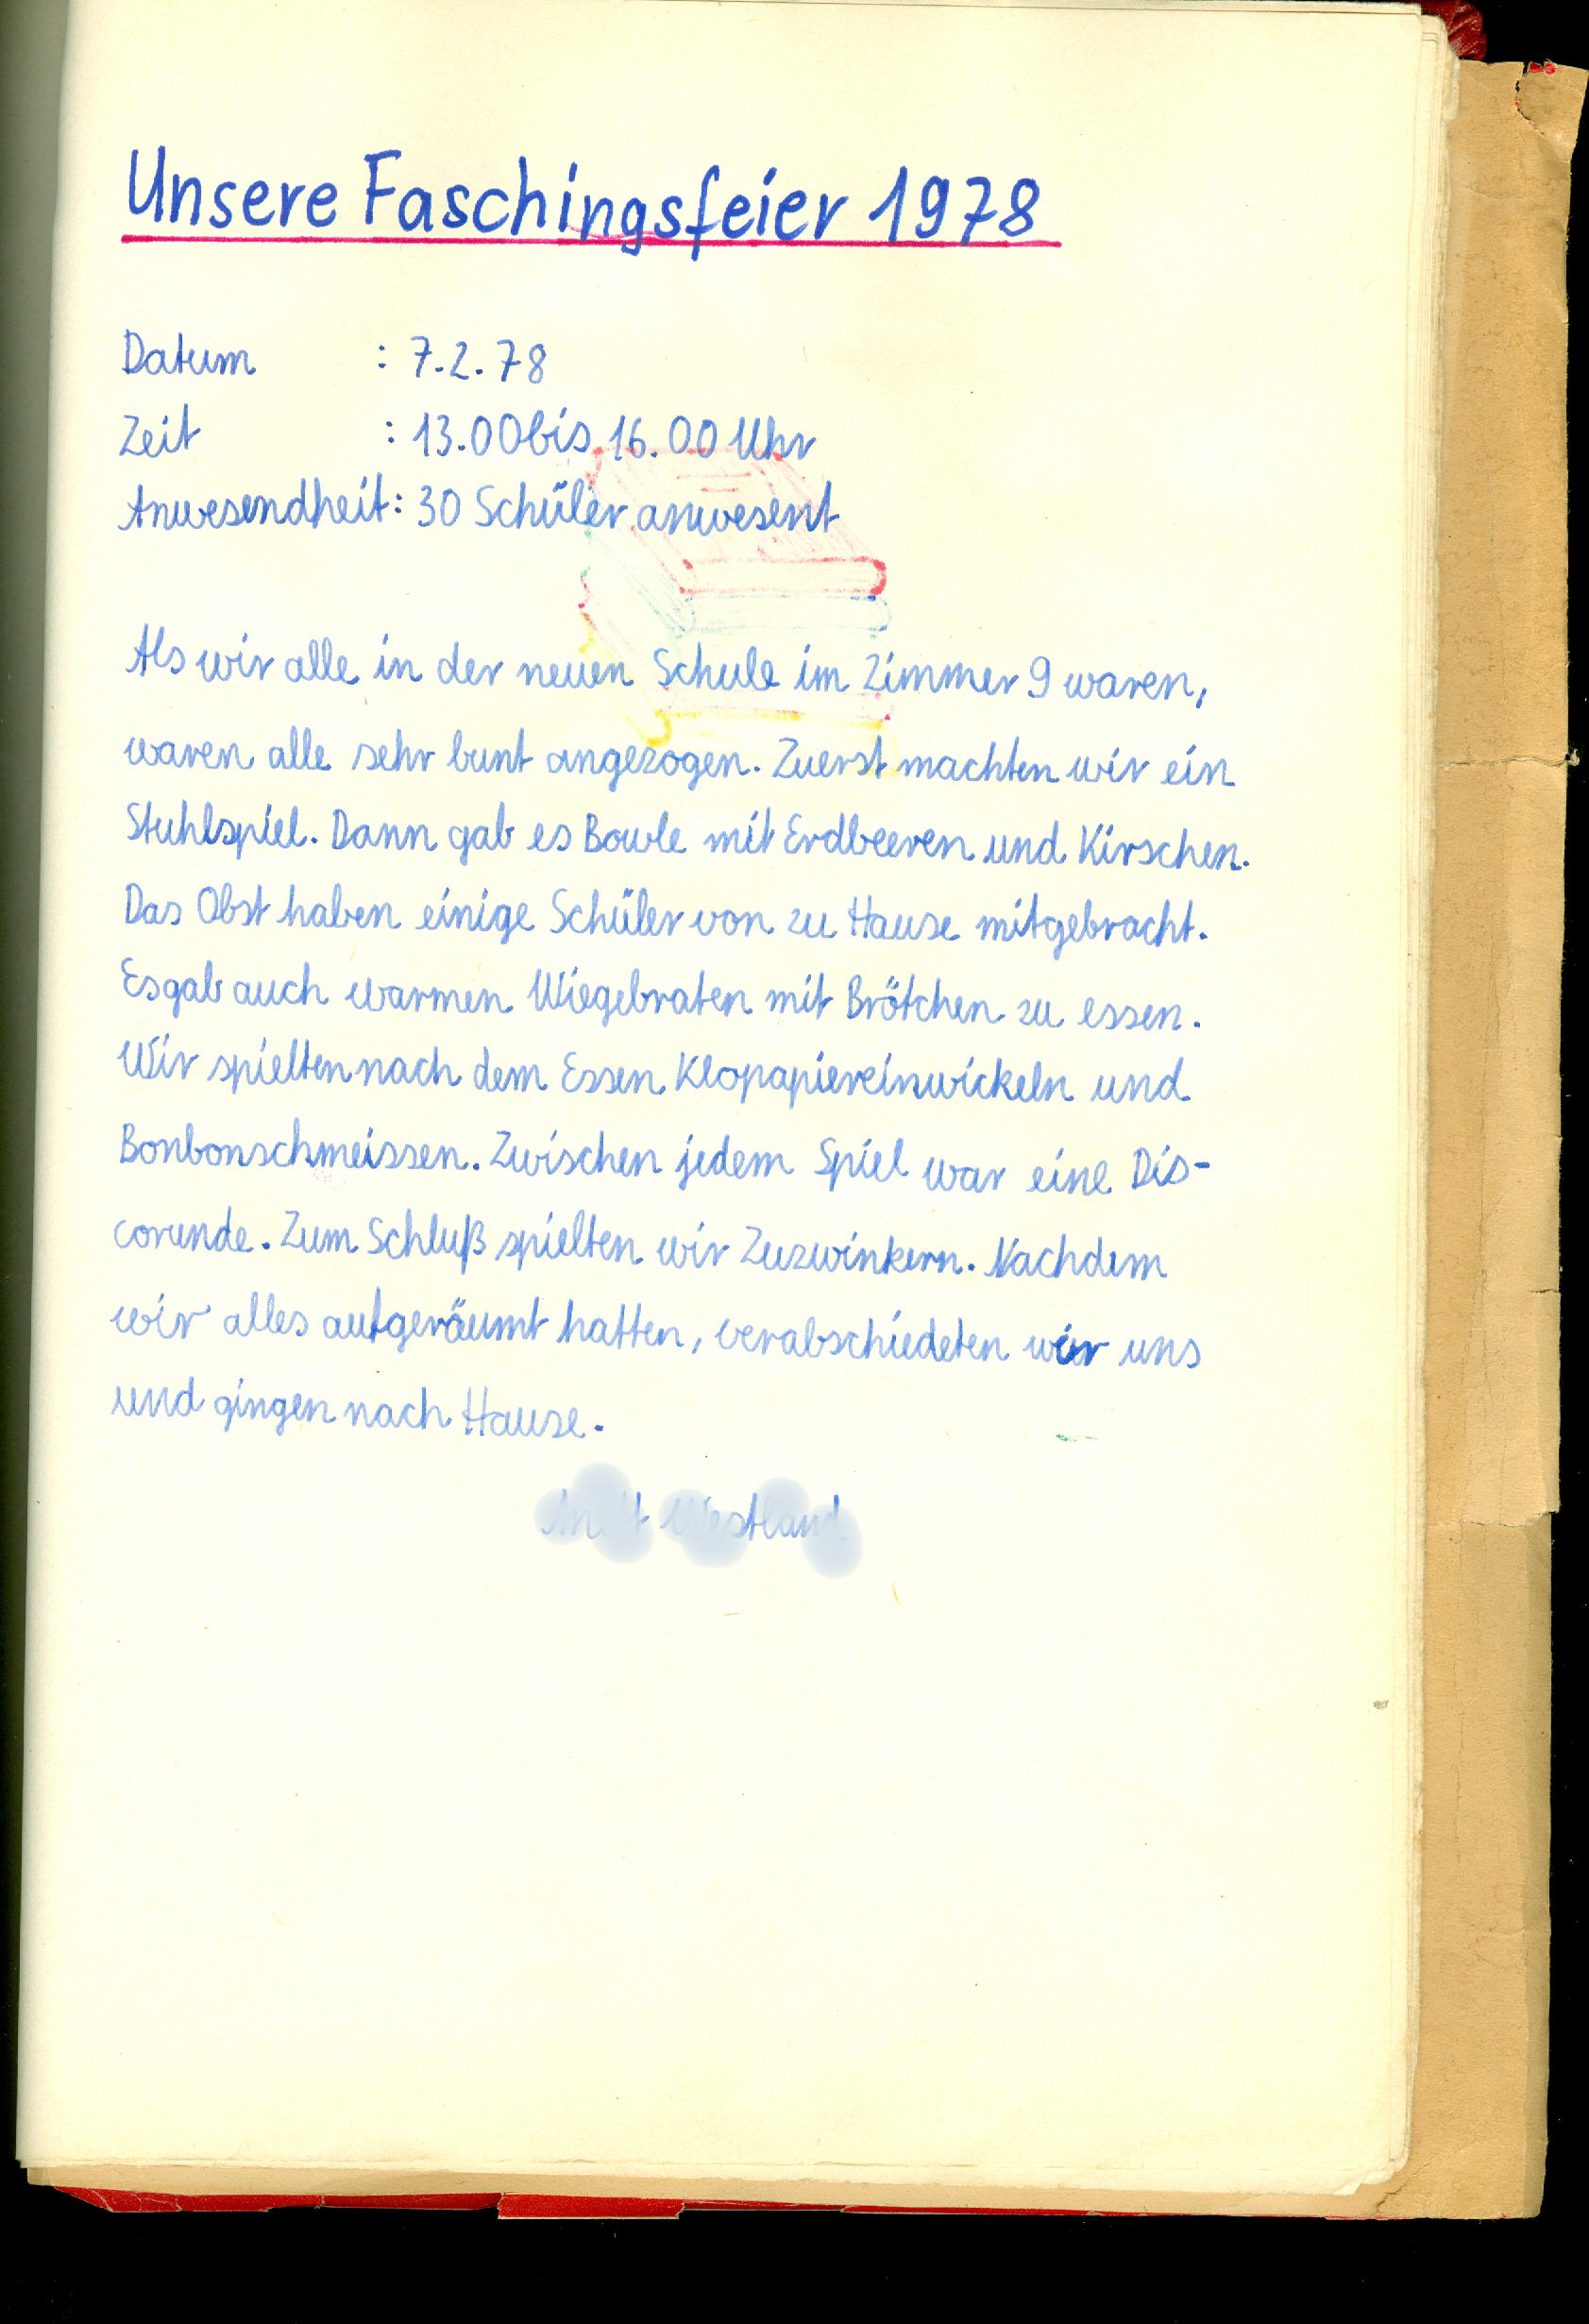 Unsere Faschingsfeier 1978
Datum : 7.2.78
Zeit : 13.00 bis 16.00 Uhr
Anwesendheit: 30 Schüler anwesent
Als wir alle in der neuen Schule im Zimmer 9 waren,
waren alle sehr bunt angezogen. Zuerst machten wir ein
Stuhlspiel. Dann gab es Bowle mit Erdbeeren und Kirschen.
Das Obst haben einige Schüler von zu Hause mitgebracht.
Es gab auch warmen Wiegebraten mit Brötchen zu essen.
Wir spielten nach dem Essen Klopapiereinwickeln und
Bonbonschmeissen. Zwischen jedem Spiel war eine Dis-
corunde. Zum Schluß spielten wir Zuzwinkern. Nachdem
wir alles aufgeräumt hatten, verabschiedeten wir uns
und gingen nach Hause.